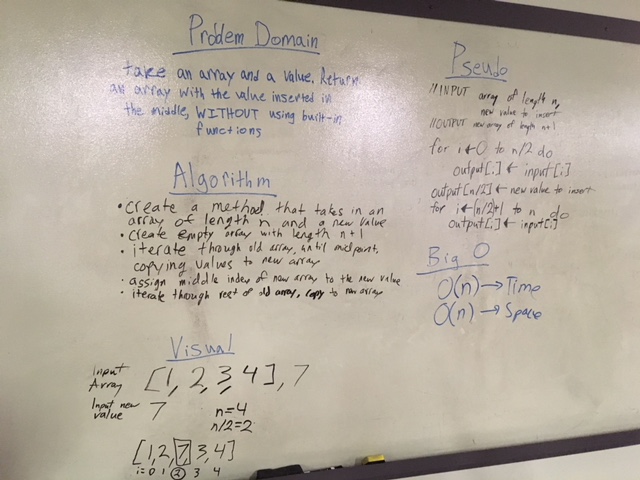 Problem Domain
take an array and a value. Return
an array with the value inserted in
the middle, WITHOUT using built-in
functions
Algorithm
• create a method that takes in an
array of length n and a new value
• create empty array with length n+1
• iterate through old array, until midpoint,
copying values to new array
• assign middle index of new array to the new value
• iterate through rest of old array, copy to new array
Visual
Input
Array
[1, 2, 3, 4], 7
Input new
value
7
n=4
n/2=2
[1, 2, 7, 3, 4]
i= 0 1 2 3 4
Pseudo
// INPUT array of length n,
new value to insert
// OUTPUT new array of length n+1
for i ← 0 to n/2 do
output[i] ← input[i]
output[n/2] ← new value to insert
for i ← (n/2)+1 to n do
output[i] ← input[i]
Big O
O(n) → Time
O(n) → Space